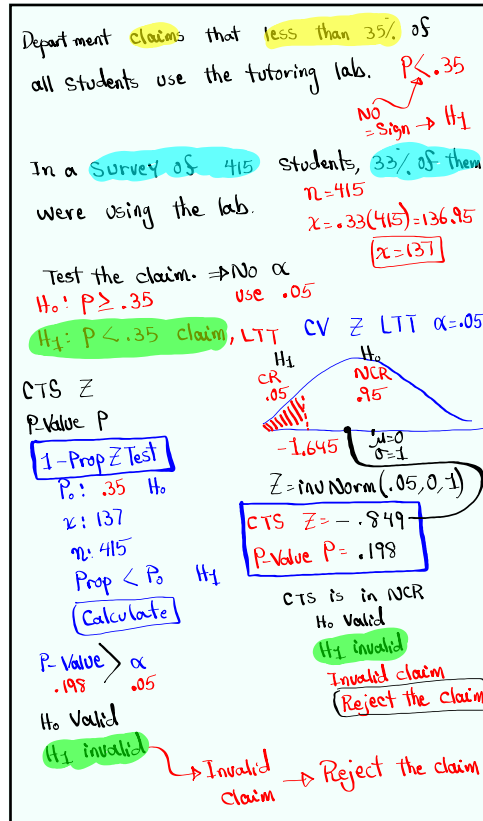 Department claims that less than 35% of
all students use the tutoring lab. P<.35
NO
= Sign → H₁
In a Survey of 415 Students, 33% of them
were using the lab.
n=415
x=.33(415)=136.95
x=137
Test the claim. ⇒ No α
use .05
H₀: P≥.35
H₁: P<.35 claim, LTT
CV Z LTT α=.05
H₁ H₀
CR NCR
.05 .95
-1.645 μ=0
σ=1
Z=invNorm(.05,0,1)
CTS Z
P-Value P
1-Prop Z Test
P₀: .35 H₀
x: 137
n: 415
Prop < P₀ H₁
Calculate
CTS Z=-.849
P-Value P=.198
CTS is in NCR
H₀ Valid
H₁ invalid
Invalid claim
Reject the claim
P-Value > α
.198 .05
H₀ Valid
H₁ invalid → Invalid claim → Reject the claim